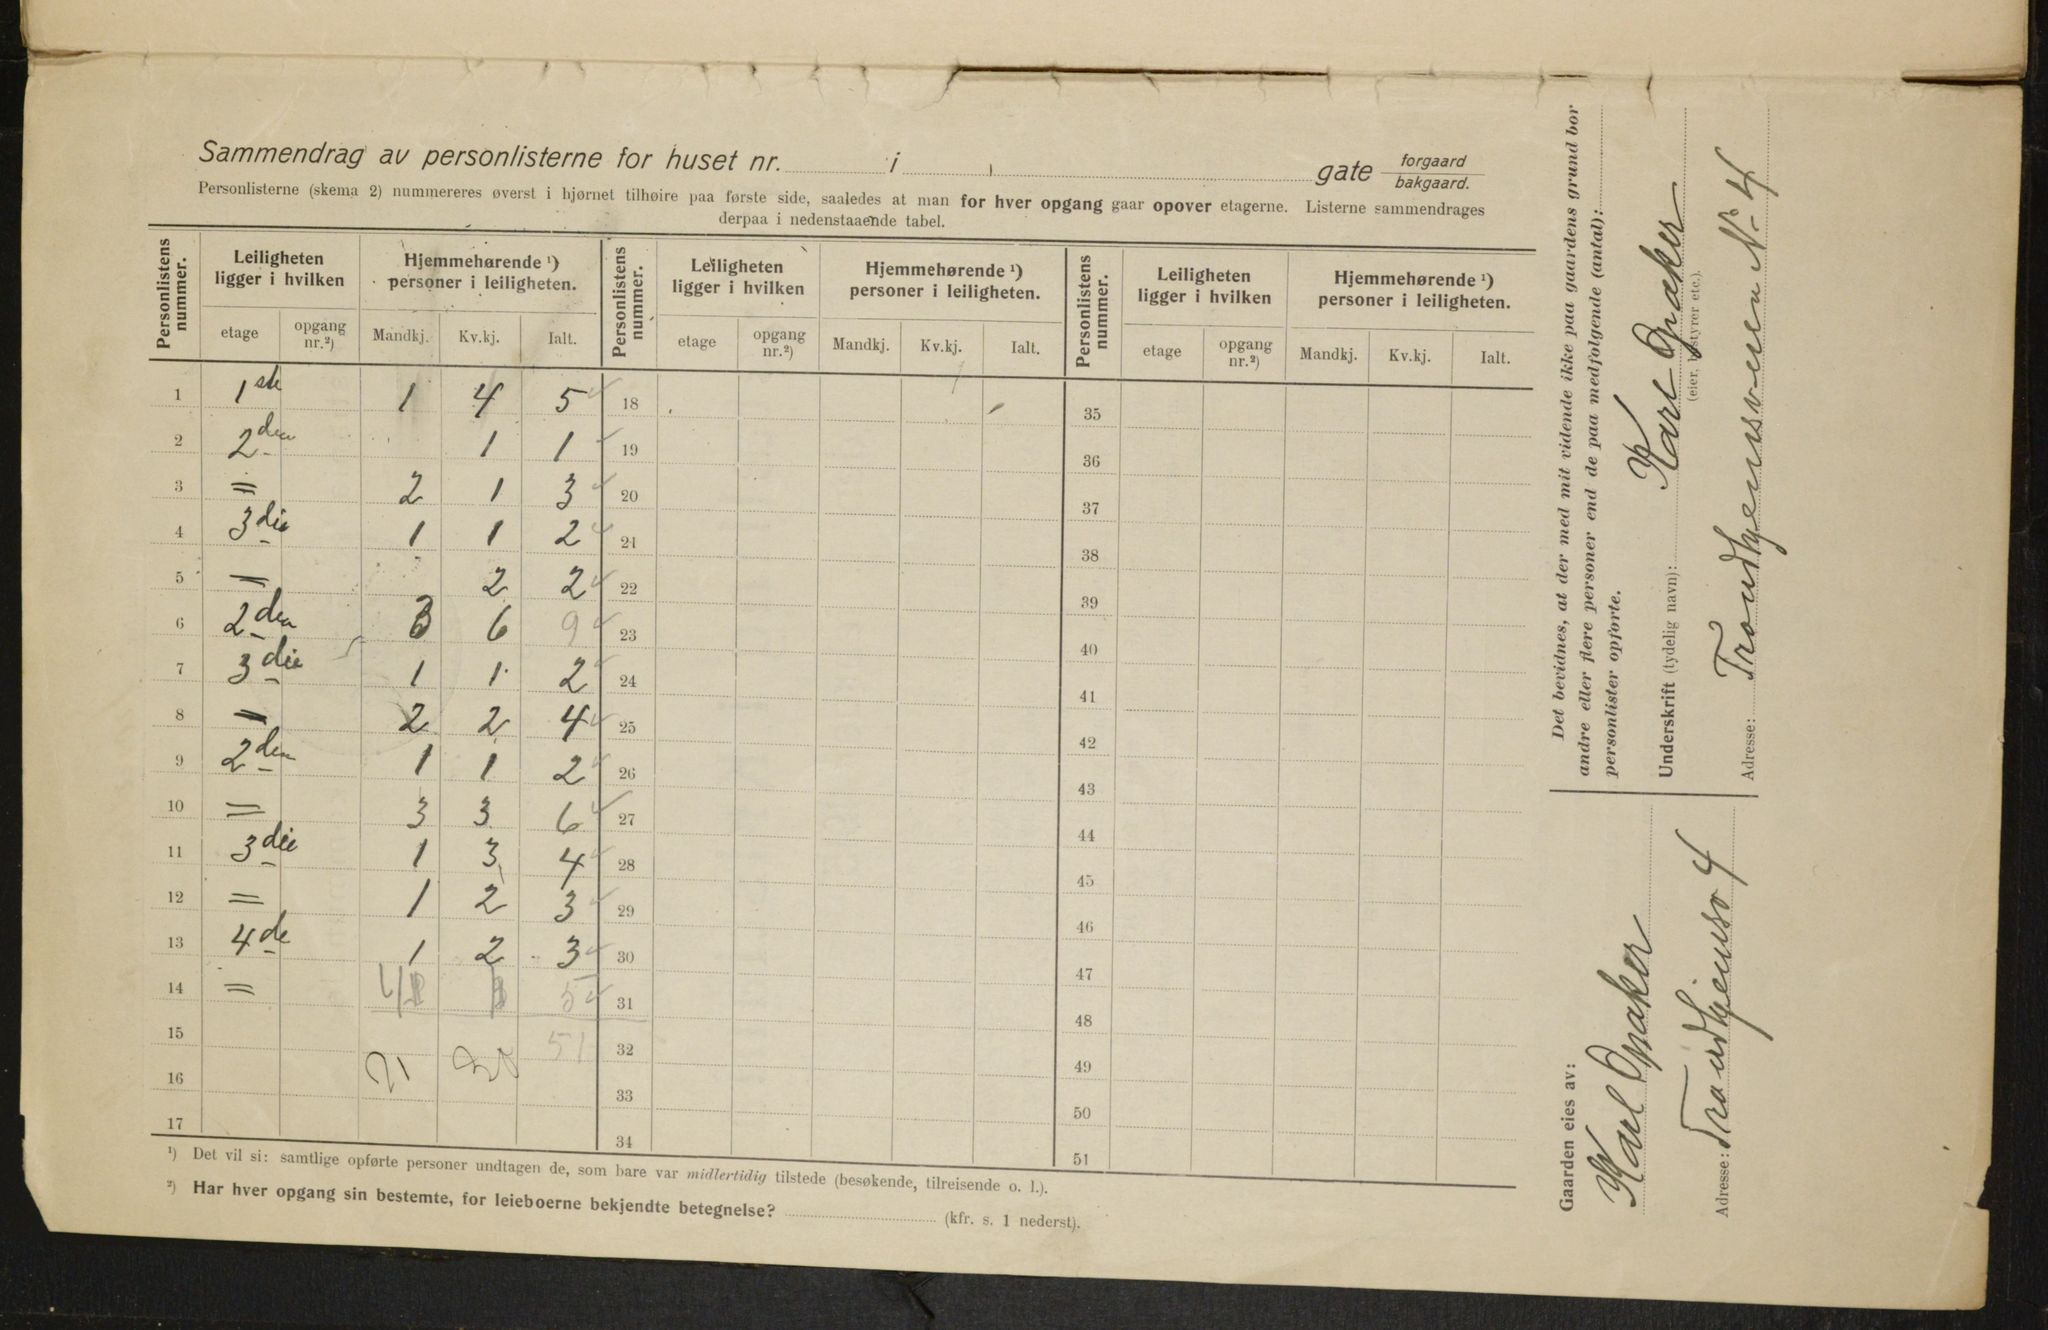 Sammendrag av personlisterne for huset nr. i gate forgaard bakgaard.
Personlisterne (skema 2) nummereres øverst i hjørnet tilhøire paa første side, saaledes at man for hver opgang gaar opover etagerne. Listerne sammendrages
derpaa i nedenstaaende tabel.
Personlistens nummer. Leiligheten ligger i hvilken Hjemmehørende ¹) personer i leiligheten. Personlistens nummer. Leiligheten ligger i hvilken Hjemmehørende ¹) personer i leiligheten. Personlistens nummer. Leiligheten ligger i hvilken Hjemmehørende ¹) personer i leiligheten.
etage opgang nr.²) Mandkj. Kv.kj. Ialt. etage opgang nr.²) Mandkj. Kv.kj. Ialt. etage opgang nr.²) Mandkj. Kv.kj. Ialt.
1 1ste 1 4 5 18 35
2 2den 1 1 19 36
3 = 2 1 3 20 37
4 3die 1 1 2 21 38
5 = 2 2 22 39
6 2den 3 6 9 23 40
7 3die 1 1 2 24 41
8 = 2 2 4 25 42
9 2den 1 1 2 26 43
10 = 3 3 6 27 44
11 3die 1 3 4 28 45
12 = 1 2 3 29 46
13 4de 1 2 3 30 47
14 = 4 1 5 31 48
15 51 32 49
16 21 30 33 50
17 34 51
¹) Det vil si: samtlige opførte personer undtagen de, som bare var midlertidig tilstede (besøkende, tilreisende o. l.).
²) Har hver opgang sin bestemte, for leieboerne bekjendte betegnelse? (kfr. s. 1 nederst).
Det bevidnes, at der med mit vidende ikke paa gaardens grund bor
andre eller flere personer end de paa medfølgende (antal):
personlister opførte.
Underskrift (tydelig navn): Karl Opsaker
(eier, bestyrer etc.).
Adresse: Trondhjemsveien No 4
Gaarden eies av:
Karl Opsaker
Adresse: Trondhjemsv 4